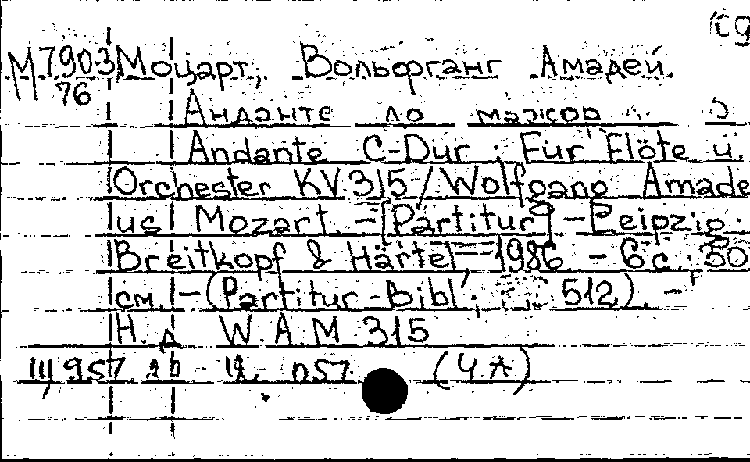 М7903 Моцарт, Вольфганг Амадей.
76
Анданте до мажор
Andante C-Dur : Für Flöte u.
Orchester KV 315 / Wolfgang Amade
us Mozart. - [Partitur] - Leipzig :
Breitkopf & Härtel, 1986. - 6 с. ; 30
см. - (Partitur-Bibl. ; 512). -
Н. д. W. A. M. 315
057 (ЧА)